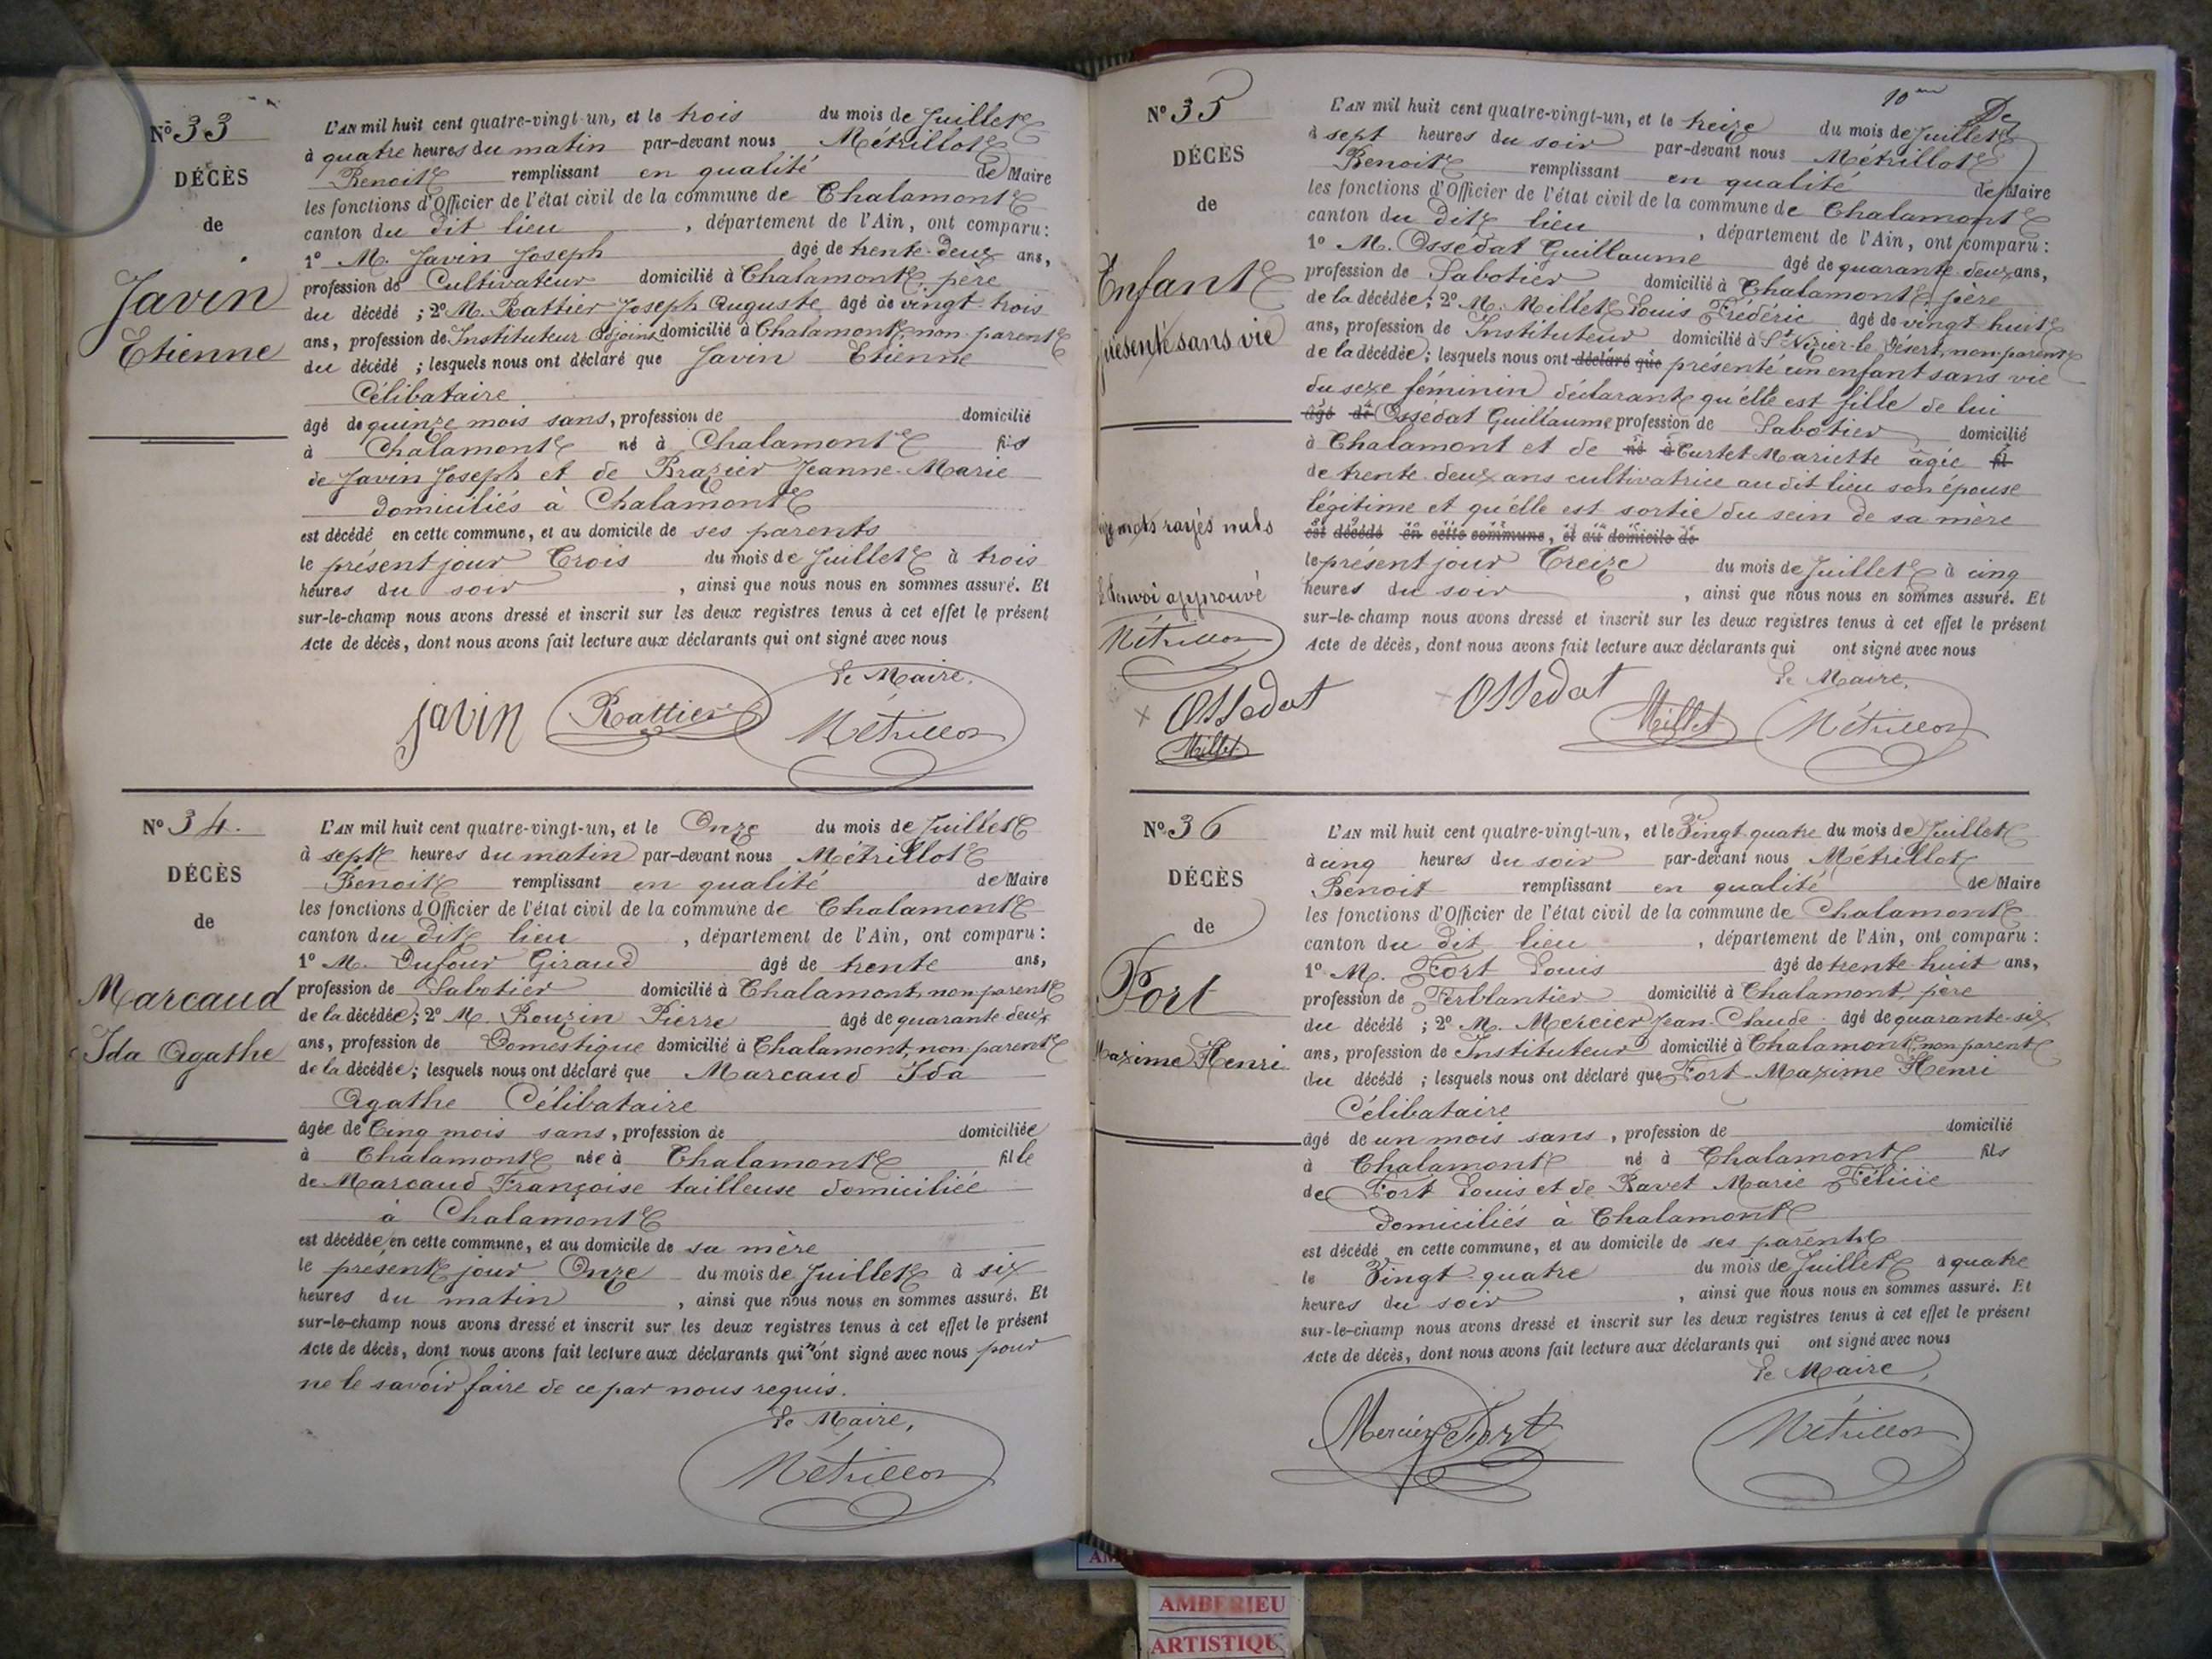 Nº 33
DÉCÈS
de
Javin
Etienne
L'AN mil huit cent quatre-vingt-un, et le trois du mois de Juillet
à quatre heures du matin par-devant nous Métrillot
Benoit remplissant en qualité de Maire
les fonctions d'Officier de l'état civil de la commune de Chalamont
canton du dit lieu , département de l'Ain, ont comparu:
1º M. Javin Joseph âgé de trente-deux ans,
profession de Cultivateur domicilié à Chalamont, père
du décédé ; 2º M. Rattier Joseph Auguste âgé de vingt-trois
ans, profession de Instituteur Adjoint domicilié à Chalamont, non parent
du décédé ; lesquels nous ont déclaré que Javin Etienne
Célibataire
âgé de quinze mois sans, profession de domicilié
à Chalamont né à Chalamont fils
de Javin Joseph et de Brazier Jeanne-Marie
domiciliés à Chalamont
est décédé en cette commune, et au domicile de ses parents
le présent jour Trois du mois de Juillet à trois
heures du soir , ainsi que nous nous en sommes assuré. Et
sur-le-champ nous avons dressé et inscrit sur les deux registres tenus à cet effet le présent
Acte de décès, dont nous avons fait lecture aux déclarants qui ont signé avec nous
Le Maire,
javin Rattier Métrillot
Nº 34.
DÉCÈS
de
Marcaud
Ida Agathe
L'AN mil huit cent quatre-vingt-un, et le Onze du mois de Juillet
à sept heures du matin par-devant nous Métrillot
Benoit remplissant en qualité de Maire
les fonctions d'Officier de l'état civil de la commune de Chalamont
canton du dit lieu , département de l'Ain, ont comparu:
1º M. Dufour Giraud âgé de trente ans,
profession de Sabotier domicilié à Chalamont, non parent
de la décédée; 2º M. Rouzin Pierre âgé de quarante deux
ans, profession de Domestique domicilié à Chalamont, non parent
de la décédée; lesquels nous ont déclaré que Marcaud Ida
Agathe Célibataire
âgée de Cinq mois sans, profession de domiciliée
à Chalamont née à Chalamont fille
de Marcaud Françoise tailleuse domiciliée
à Chalamont
est décédée en cette commune, et au domicile de sa mère
le présent jour Onze du mois de Juillet à six
heures du matin , ainsi que nous nous en sommes assuré. Et
sur-le-champ nous avons dressé et inscrit sur les deux registres tenus à cet effet le présent
Acte de décès, dont nous avons fait lecture aux déclarants qui n'ont signé avec nous pour
ne le savoir faire de ce par nous requis.
Le Maire,
Métrillot
10em
Nº 35
DÉCÈS
de
Enfant
présenté sans vie
mots rayés nuls
Renvoi approuvé
Métrillot
Ossedat
Millet
L'AN mil huit cent quatre-vingt-un, et le treize du mois de Juillet
à sept heures du soir par-devant nous Métrillot
Benoit remplissant en qualité de Maire
les fonctions d'Officier de l'état civil de la commune de Chalamont
canton du dit lieu , département de l'Ain, ont comparu:
1º M. Ossédat Guillaume âgé de quarante-deux ans,
profession de Sabotier domicilié à Chalamont père
de la décédée; 2º M. Millet Louis Frédéric âgé de vingt huit
ans, profession de Instituteur domicilié à St Nizier-le Désert, non parent
de la décédée; lesquels nous ont déclaré que présenté un enfant sans vie
du sexe féminin déclarant qu'elle est fille de lui
âgé de Ossédat Guillaume profession de Sabotier domicilié
à Chalamont et de né à Curtet Mariette âgée fil
de trente-deux ans cultivatrice au dit lieu son épouse
légitime et qu'elle est sortie du sein de sa mère
est décédé en cette commune, et au domicile de
le présent jour Treize du mois de Juillet à cinq
heures du soir , ainsi que nous nous en sommes assuré. Et
sur-le-champ nous avons dressé et inscrit sur les deux registres tenus à cet effet le présent
Acte de décès, dont nous avons fait lecture aux déclarants qui ont signé avec nous
Le Maire,
Ossedat Millet Métrillot
Nº 36
DÉCÈS
de
Fort
Maxime Henri
L'AN mil huit cent quatre-vingt-un, et le Vingt-quatre du mois de Juillet
à cinq heures du soir par-devant nous Métrillot
Benoit remplissant en qualité de Maire
les fonctions d'Officier de l'état civil de la commune de Chalamont
canton du dit lieu , département de l'Ain, ont comparu:
1º M. Fort Louis âgé de trente-huit ans,
profession de Ferblantier domicilié à Chalamont, père
du décédé ; 2º M. Mercier Jean-Claude âgé de quarante-six
ans, profession de Instituteur domicilié à Chalamont, non parent
du décédé ; lesquels nous ont déclaré que Fort Maxime Henri
Célibataire
âgé de un mois sans, profession de domicilié
à Chalamont né à Chalamont fils
de Fort Louis et de Ravet Marie Félicie
domiciliés à Chalamont
est décédé en cette commune, et au domicile de ses parents
le Vingt-quatre du mois de Juillet à quatre
heures du soir , ainsi que nous nous en sommes assuré. Et
sur-le-champ nous avons dressé et inscrit sur les deux registres tenus à cet effet le présent
Acte de décès, dont nous avons fait lecture aux déclarants qui ont signé avec nous
Le Maire,
Mercier Fort Métrillot
AMBERIEU
ARTISTIQU